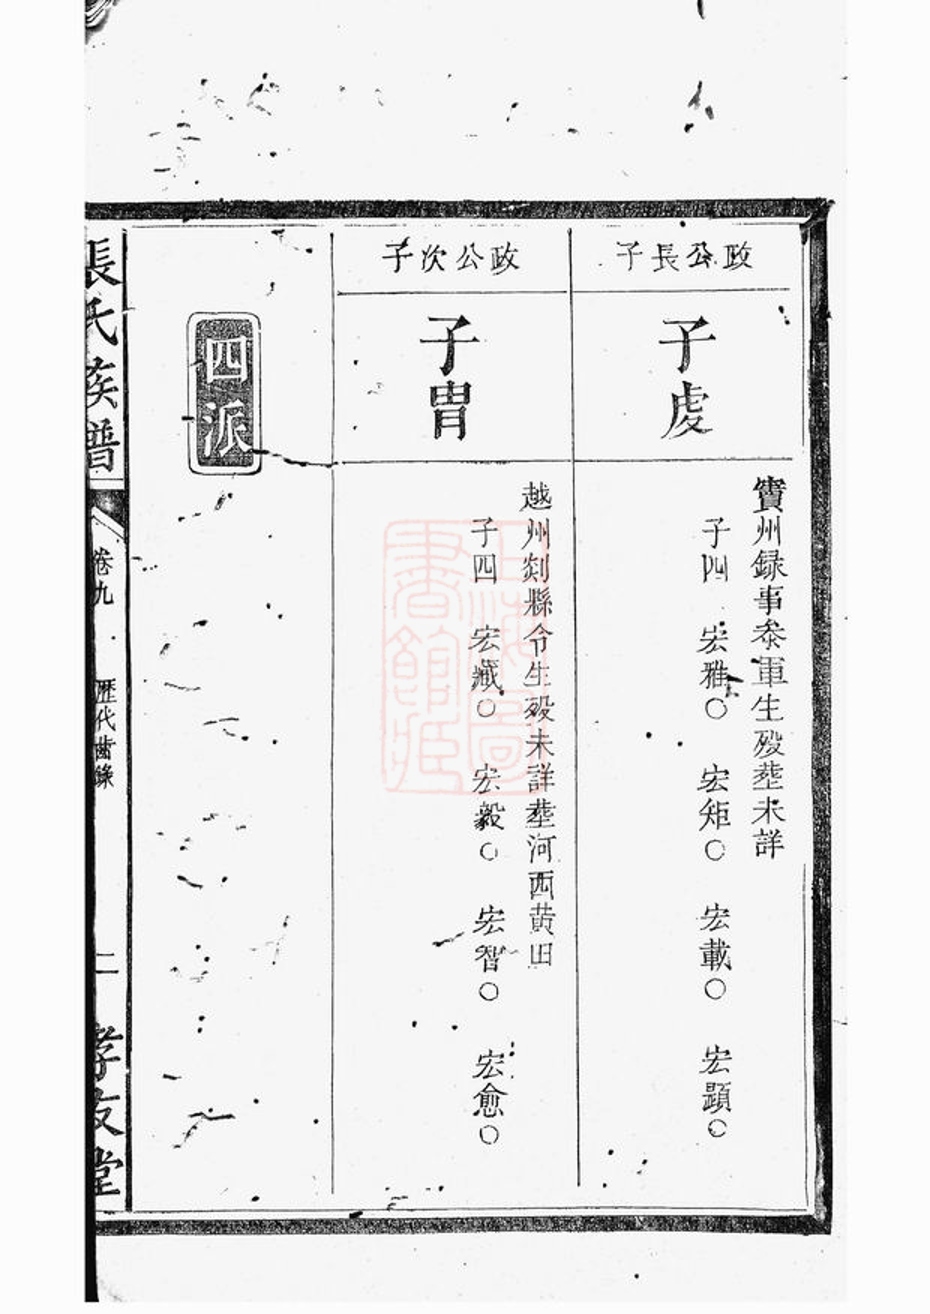 政公長子
子虔
賓州録事叅軍生殁塟未詳
子四 宏雅○ 宏矩○ 宏載○ 宏顕○
政公次子
子胄
越州剡縣令生殁未詳塟河西黄田
子四 宏藏○ 宏毅○ 宏智○ 宏愈○
四派
張氏族譜
卷九 歷代齒錄
二 孝友堂